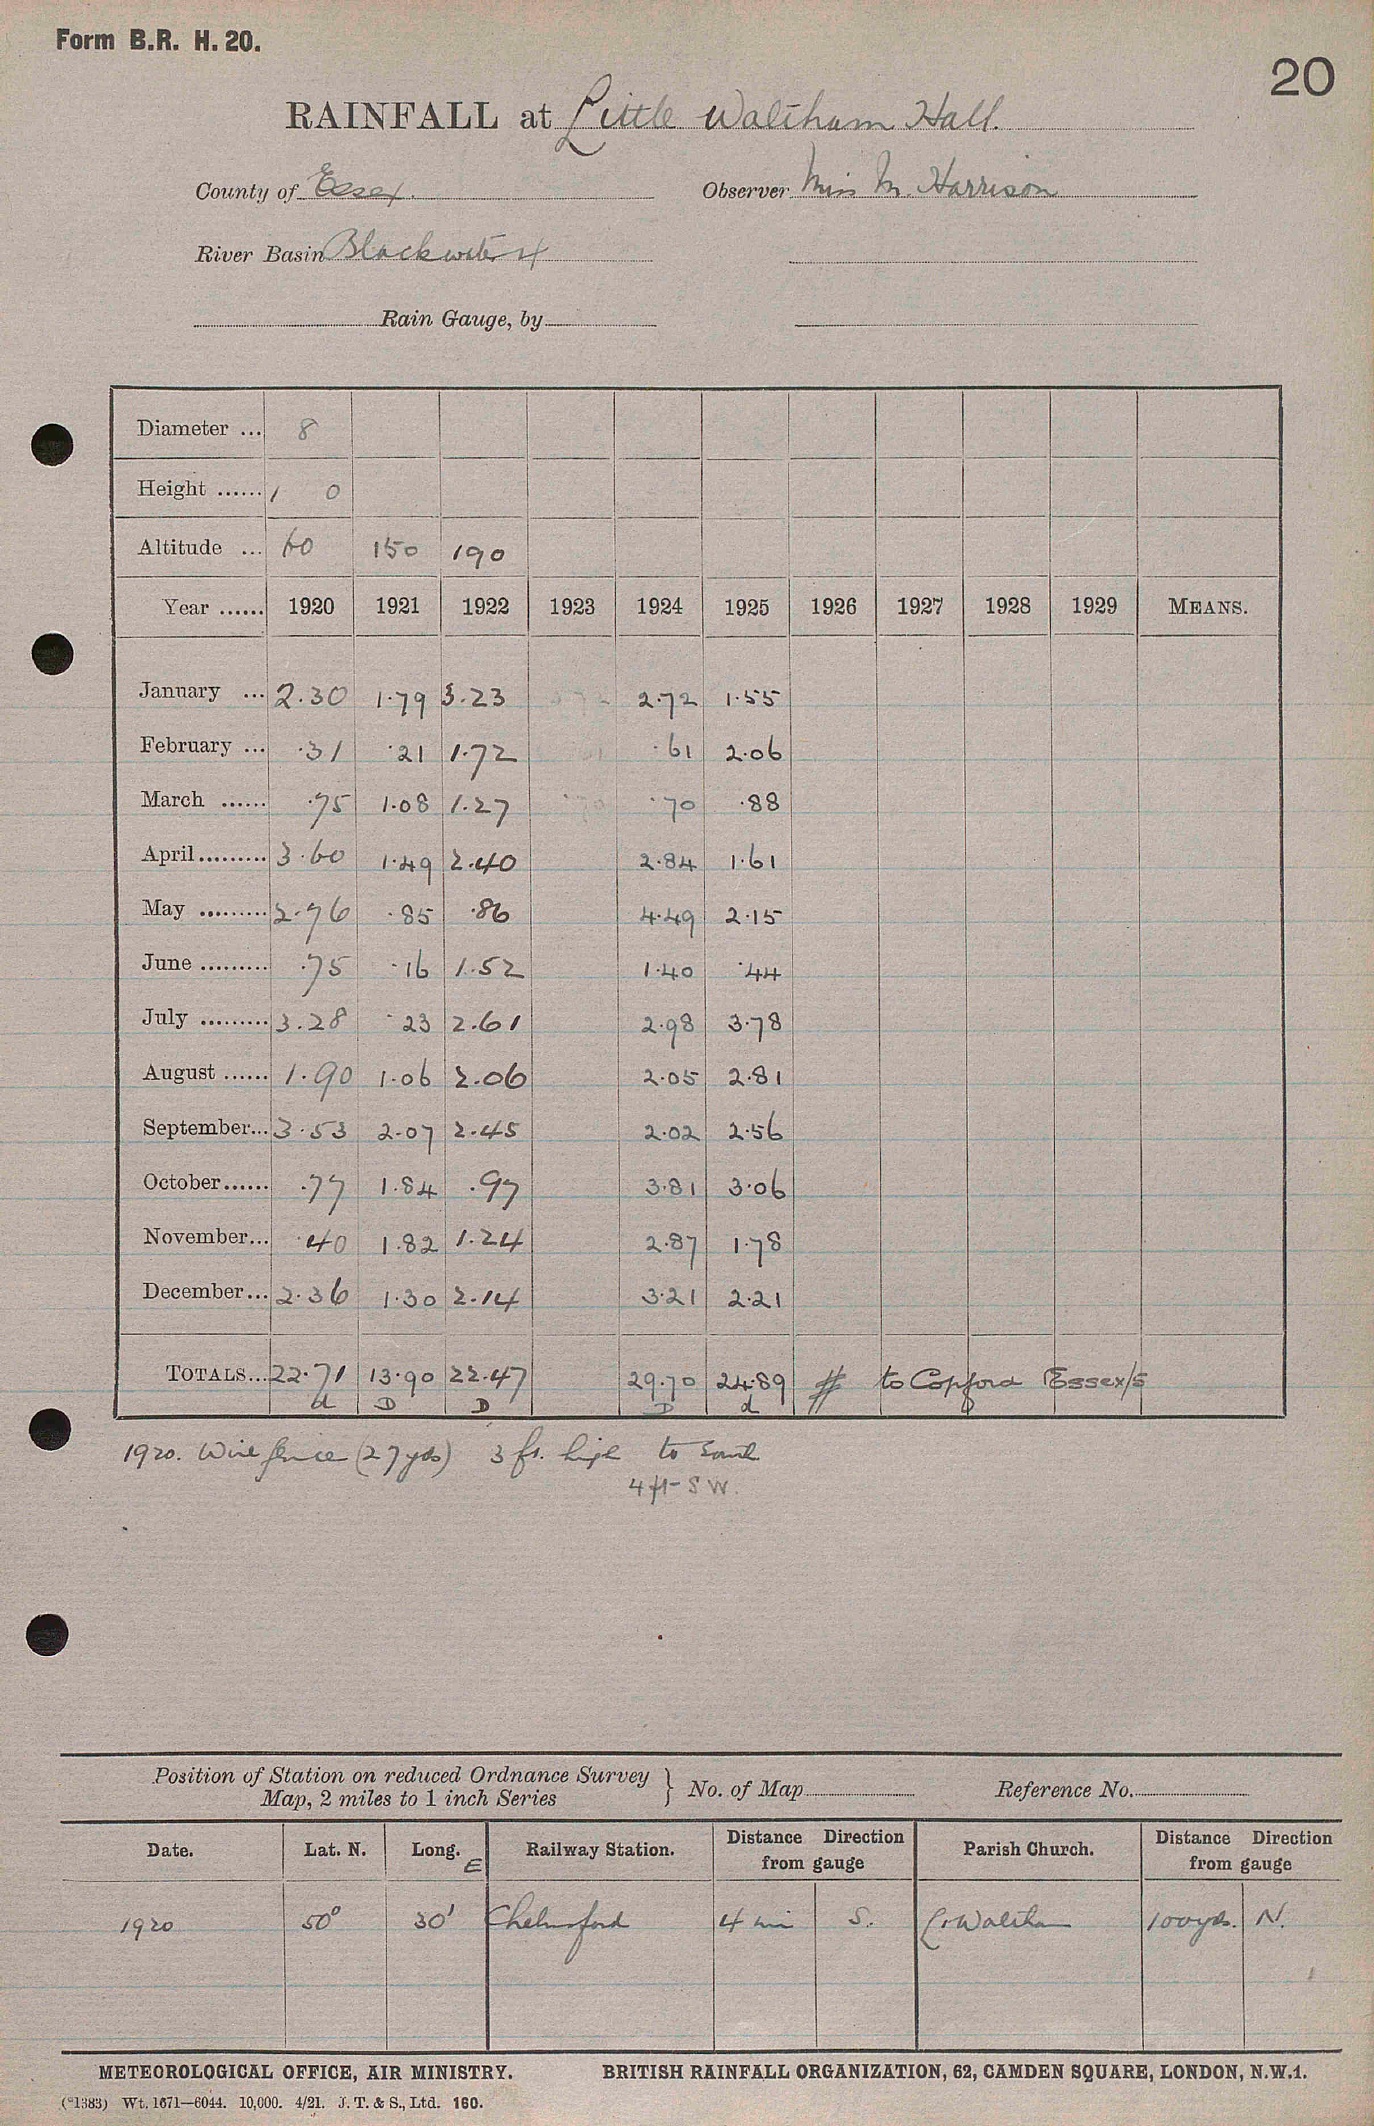 Form B.R. H. 20.
20
RAINFALL at Little Waltham Hall.
County of Essex. Observer Miss M. Harrison
River Basin Blackwater
Rain Gauge, by
Diameter ... 8
Height ...... 1 0
Altitude ... 60 150 190
Year ...... 1920 1921 1922 1923 1924 1925 1926 1927 1928 1929 MEANS.
January ... 2.30 1.79 3.23 2.72 1.55
February ... .31 .21 1.72 .61 2.06
March ...... .75 1.08 1.27 .70 .88
April ......... 3.60 1.49 2.40 2.84 1.61
May ......... 2.76 .85 .86 4.49 2.15
June ......... .75 .16 1.52 1.40 .44
July ......... 3.28 .23 2.61 2.98 3.78
August ...... 1.90 1.06 2.06 2.05 2.81
September... 3.53 2.07 2.45 2.02 2.56
October...... .77 1.84 .97 3.81 3.06
November... .40 1.82 1.24 2.87 1.78
December... 2.36 1.30 2.14 3.21 2.21
TOTALS... 22.71 13.90 22.47 29.70 24.89 # to Copford Essex/5
d D D D d
1920. Wire fence (27 yds) 3 ft. high to South
4 ft S W.
Position of Station on reduced Ordnance Survey
Map, 2 miles to 1 inch Series } No. of Map Reference No.
Date. Lat. N. Long. E Railway Station. Distance Direction from gauge Parish Church. Distance Direction from gauge
1920 50° 30' Chelmsford 4 mi S. L. Waltham 100 yds. N.
METEOROLOGICAL OFFICE, AIR MINISTRY. BRITISH RAINFALL ORGANIZATION, 62, CAMDEN SQUARE, LONDON, N.W.1.
(*1383) Wt. 1671—6044. 10,000. 4/21. J. T. & S., Ltd. 160.